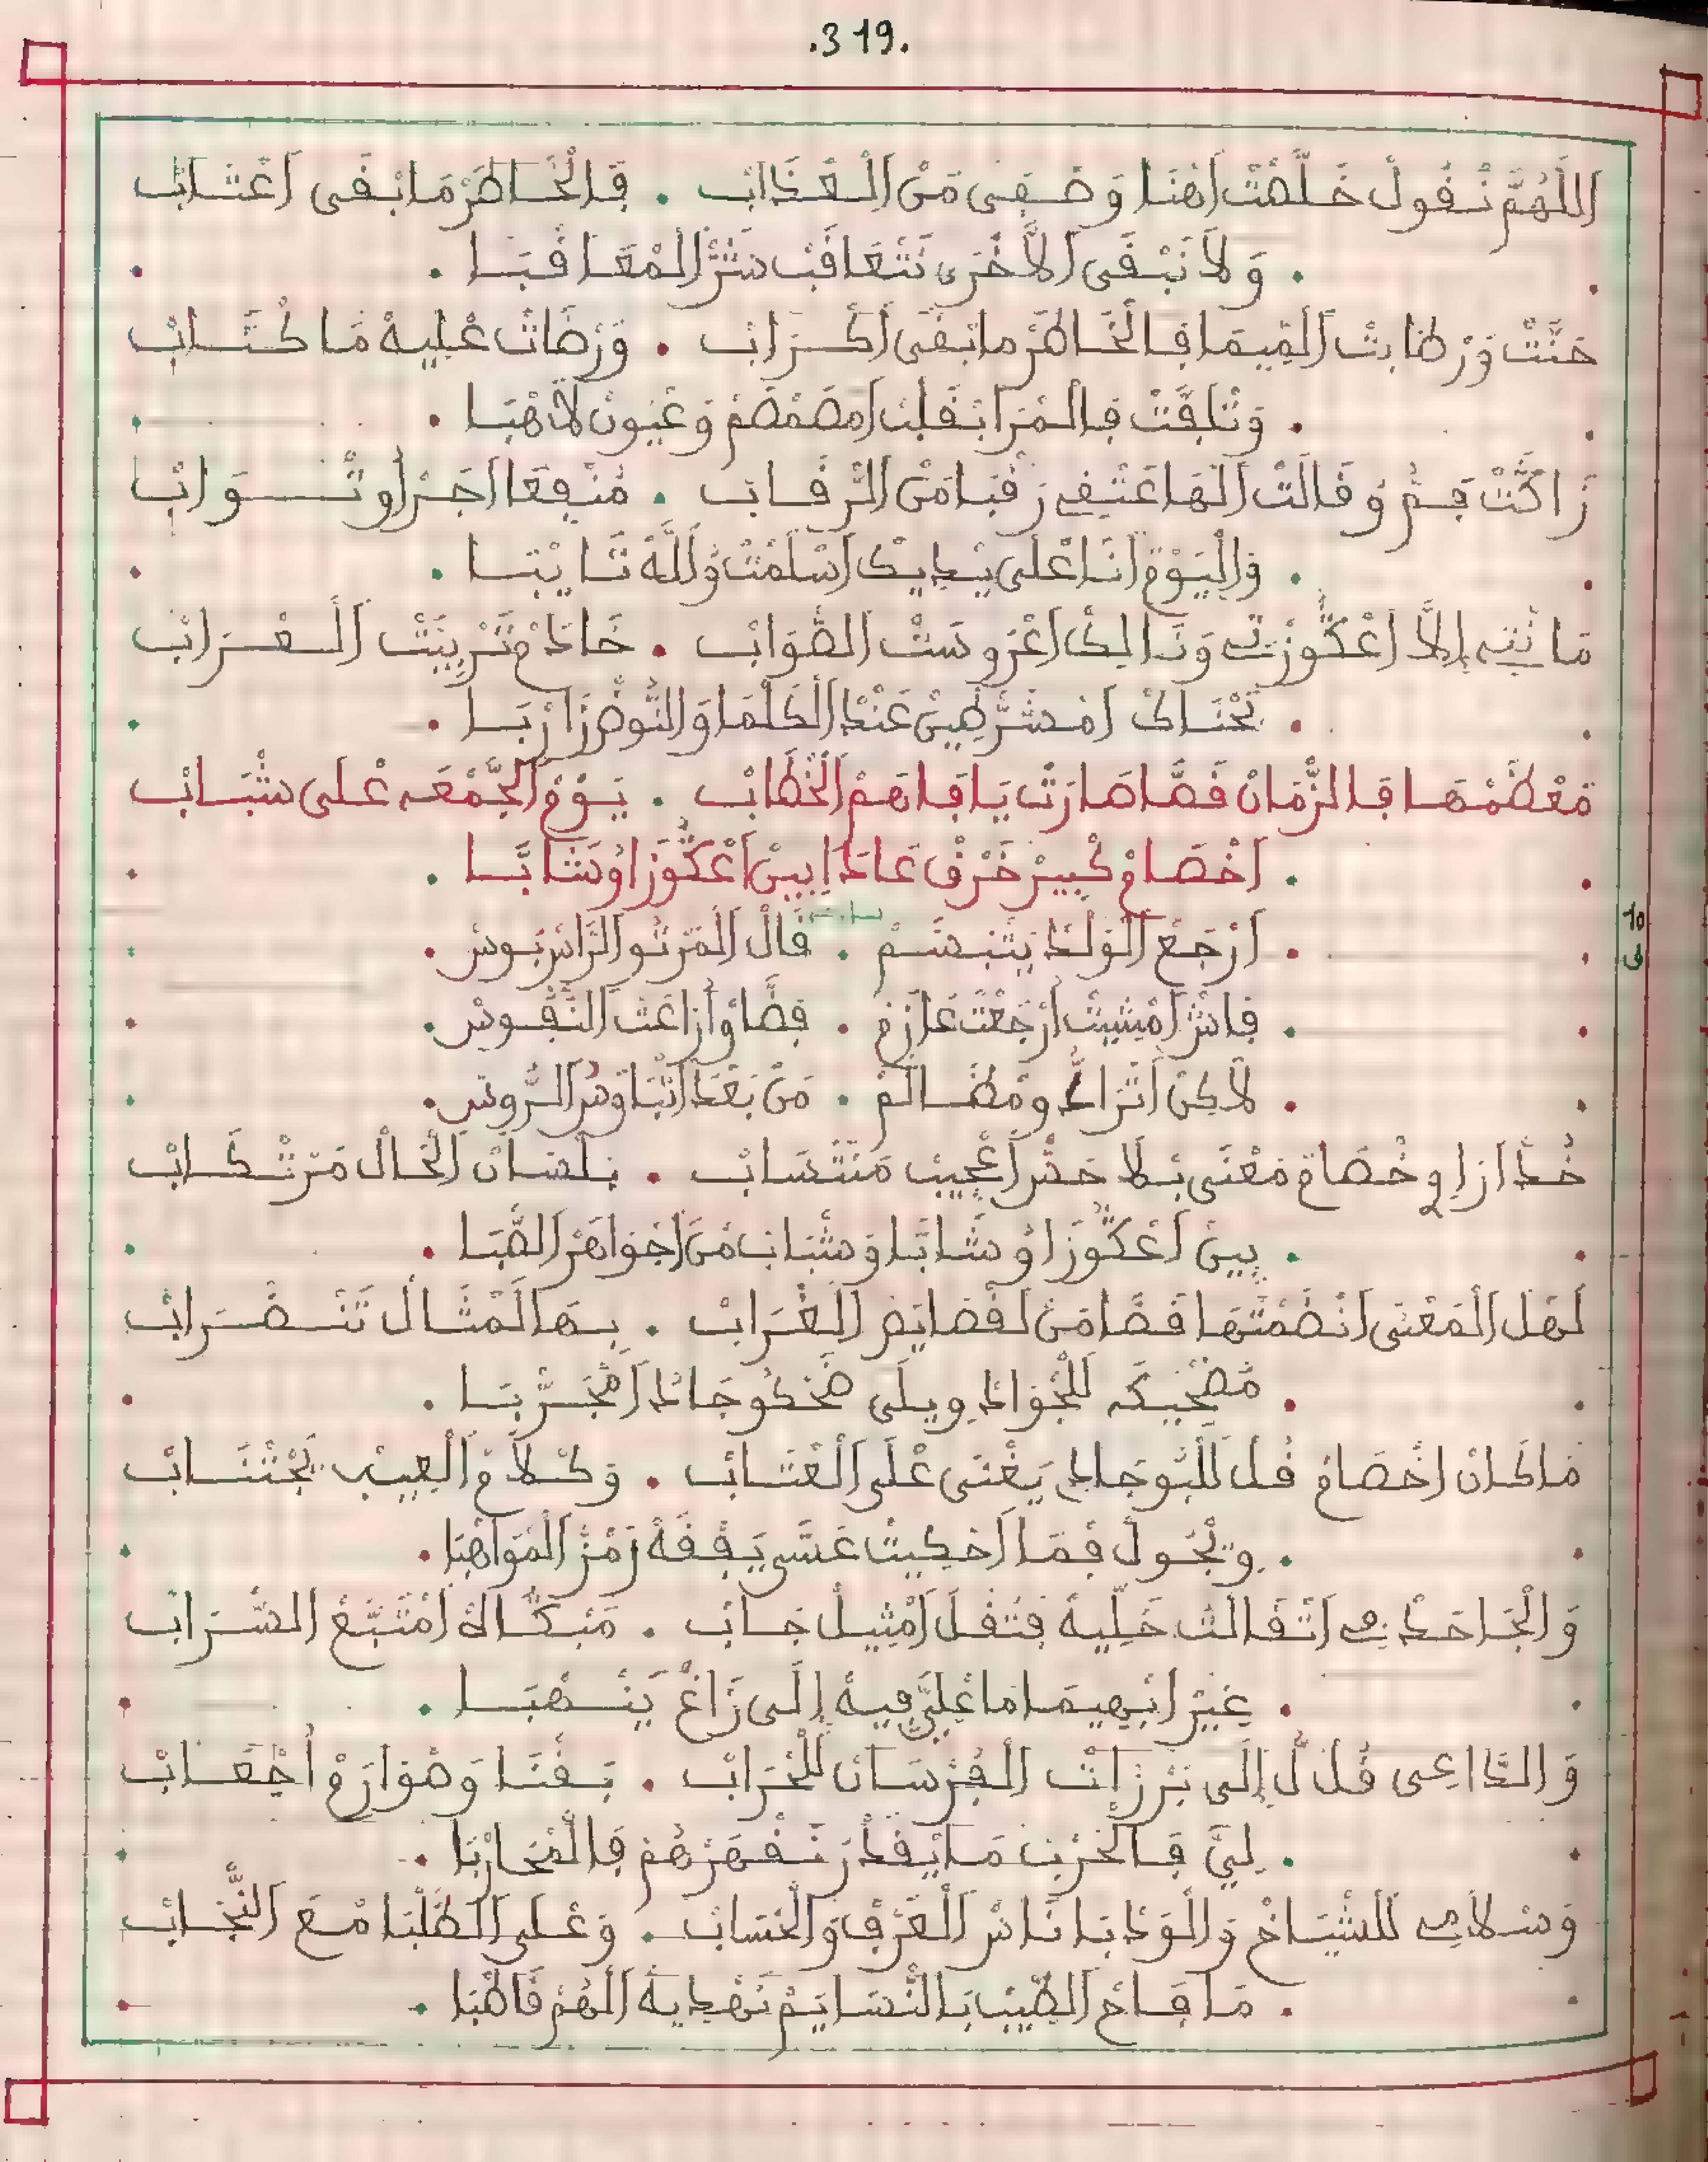 .319.
اللَّهُمَّ نْقُولْ خَلَّصْتْ اَهْنَا وَصْفِى مَنْ الْعْذَابْ . فَالْخَاطَرْ مَا بْقَى اَعْتَابْ
. وَلاَ نَبْقَى الاَخْرَى نَتْعَاقَبْ شَرّْ الْمْعَاقْبَا .
حَنَّتْ وَرْطَابِتْ الْقِيمَا فِالْخَاطَرْ مابْقَى اَكْرَابْ . وَرْضَاتْ عْلِيهْ مَا كْتَابْ
. وَتْلَفّْتْ فِالْمْرَا بْقَلْبْ اَمْصَمْصَمْ وَعْيُونْ لاَهْبَا .
زَاكّتْ فِيمْ وْقَالَتْ الْهَا عَتْقِى رَقْبَا مَنْ الرّْقَابْ . مَنْفِعَا اَجَرْ اُو تْوَابْ
. وَالْيَوْمْ اَنَا عْلَى يْدِيكْ اَسْلَمْتْ وْاَللَّهْ تَايْبَا .
مَا نْتِى إِلاَّ اعْكُوزْتِى وَنَا لِكْ اعْرُوسْتْ الصّْوَابْ . خَادْمْ تَرْبِيَتْ الْعْرَابْ
. نَحْتَاكْ اَمْشَرّْطِينْ عَنْدْ الْكَلْمَا وَالنُّوضْ زَارْبَا .
مَعْظَمْهَا فَالزّْمَانْ قَصَّا صَارَتْ يَا فَاهَمْ الْخْطَابْ . يَوْمْ الْجَّمْعَه عْلَى شْبَابْ
. اَخْصَامْ كْبِيرْ خَرْقْ عَادَا بِينْ اَعْكُوزَا وْشَابَّا .
. اَرْجَعْ الْوَلْدْ يَتْبَسَّمْ . قَالْ الْمَرْتُو الرَّاسْ بَوسْ.
. فِاشْ اَمْشِيتْ اَرْجَعْتْ عَازَمْ . قِصَّا وْاَزَاعَتْ النّْفُوسْ.
. لاَكِنْ اَتْرَادّْ ومْظَالَمْ . مَنْ بَعْدْ اَتْبَاوَسْ الرُّوسْ.
خُدْ ازَاوِى خْصَامْ مَعْنَى بْلاَ حَشْرْ اَعْجِيبْ مَنْتْسَابْ . بلْسَانْ الْحَالْ مَرْتْكَابْ
. بِينْ اَعْكُوزَا وْشَابَّا وْشْبَابْ مَنْ اَجْوَاهَرْ الصّْبَا .
لَهْلْ الْمَعْنَى اَنْظَمْتْهَا قَصَّا مَنْ لَقْصَايَصْ الْغْرَابْ . بِهَا لَمْثَالْ تَنْضْرَابْ
. مْضْحِيكَه لَلْجْوَادْ وِيلَى ضَحْكُو جَادْ اَمْجَرّْبَا .
مَا كَانْ اخْصَامْ قُلْ لَلْبُوجَادِى يَغْنَى عْلَى الْعْتَابْ . وَكْلاَمْ الْعِيبْ يَجْتْنَابْ
. وِيْجُولْ فْمَا اَحْكِيتْ عَسَّى يَفْقَهْ رَمْزْ الْمْوَاهْبَا .
وَالْجَاحَدْ رِى اَتْقَالَتْ خَلِّيهْ فْتْقَلْ اَمْثِيلْ جَابْ . مَبْكَّالَهْ اَمْتَبَّعْ السّْرَابْ
. غِيرْ اَبْهِيمَا مَا عْلِيَّ فِيهْ إِلَى زَاغْ يَنْهْبَا .
وَالدَّاعِى قُلْ لُ إِلَى بَرْزَاتْ الْفُرْسَانْ لَلْحْرَابْ . بَقْنَا وَصْوَارَمْ اُجْعَابْ
. لِيَّ فَالْحَرْبْ مَا يْقَدْرْ نَقْهَرْهُمْ فَالْمْحَارْبَا .
وَسْلاَمِى لَلشّْيَاخْ وَالْوَدْبَا نَاسْ الْعَرْفْ وَالْحْسَابْ . وَعْلَى الطَّلْبَا مْعَ النّْجَابْ
. مَا فَاحْ الطِّيبْ بَالنّْسَايَمْ نَهْدِيهْ الْهُمْ قَاطْبَا .